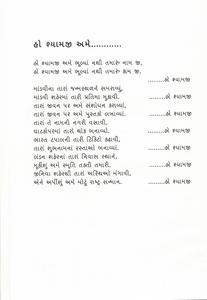 હો શ્યામજી અમે............
હો શ્યામજી અમે ભૂલ્યાં નથી તમારું નામ જી,
હો શ્યામજી અમે ભૂલ્યાં નથી તમારું કામ જી.
...............હો શ્યામજી
માંડવીના તારાં જન્મસ્થળને સમરાવ્યું,
માંડવી શહેરમાં તારી પ્રતિમા મૂકાવી. ...............હો શ્યામજી
તારાં જીવન પર અમે સંશોધન કરાવ્યાં,
તારાં જીવન પર અમે પુસ્તકો લખાવ્યાં. ...............હો શ્યામજી
તારાં તે નામની નગરી વસાવી,
ઘાટકોપરમાં તારાં ચોક બનાવ્યા. ...............હો શ્યામજી
ભારત ટપાલની તારી ટિકિટો કઢાવી,
તારાં શુભનામનાં રસ્તાઓ બનાવ્યાં. ...............હો શ્યામજી
લંડન શહેરમાં તારાં નિવાસ સ્થાને,
મૂકીશું અમે સ્મૃતિ તક્તી તમારી. ...............હો શ્યામજી
જીનિવા શહેરથી તારાં અસ્થિઓ મંગાવી,
એને અર્પીશું અમે મોટું રાષ્ટ્ર સન્માન. ...............હો શ્યામજી